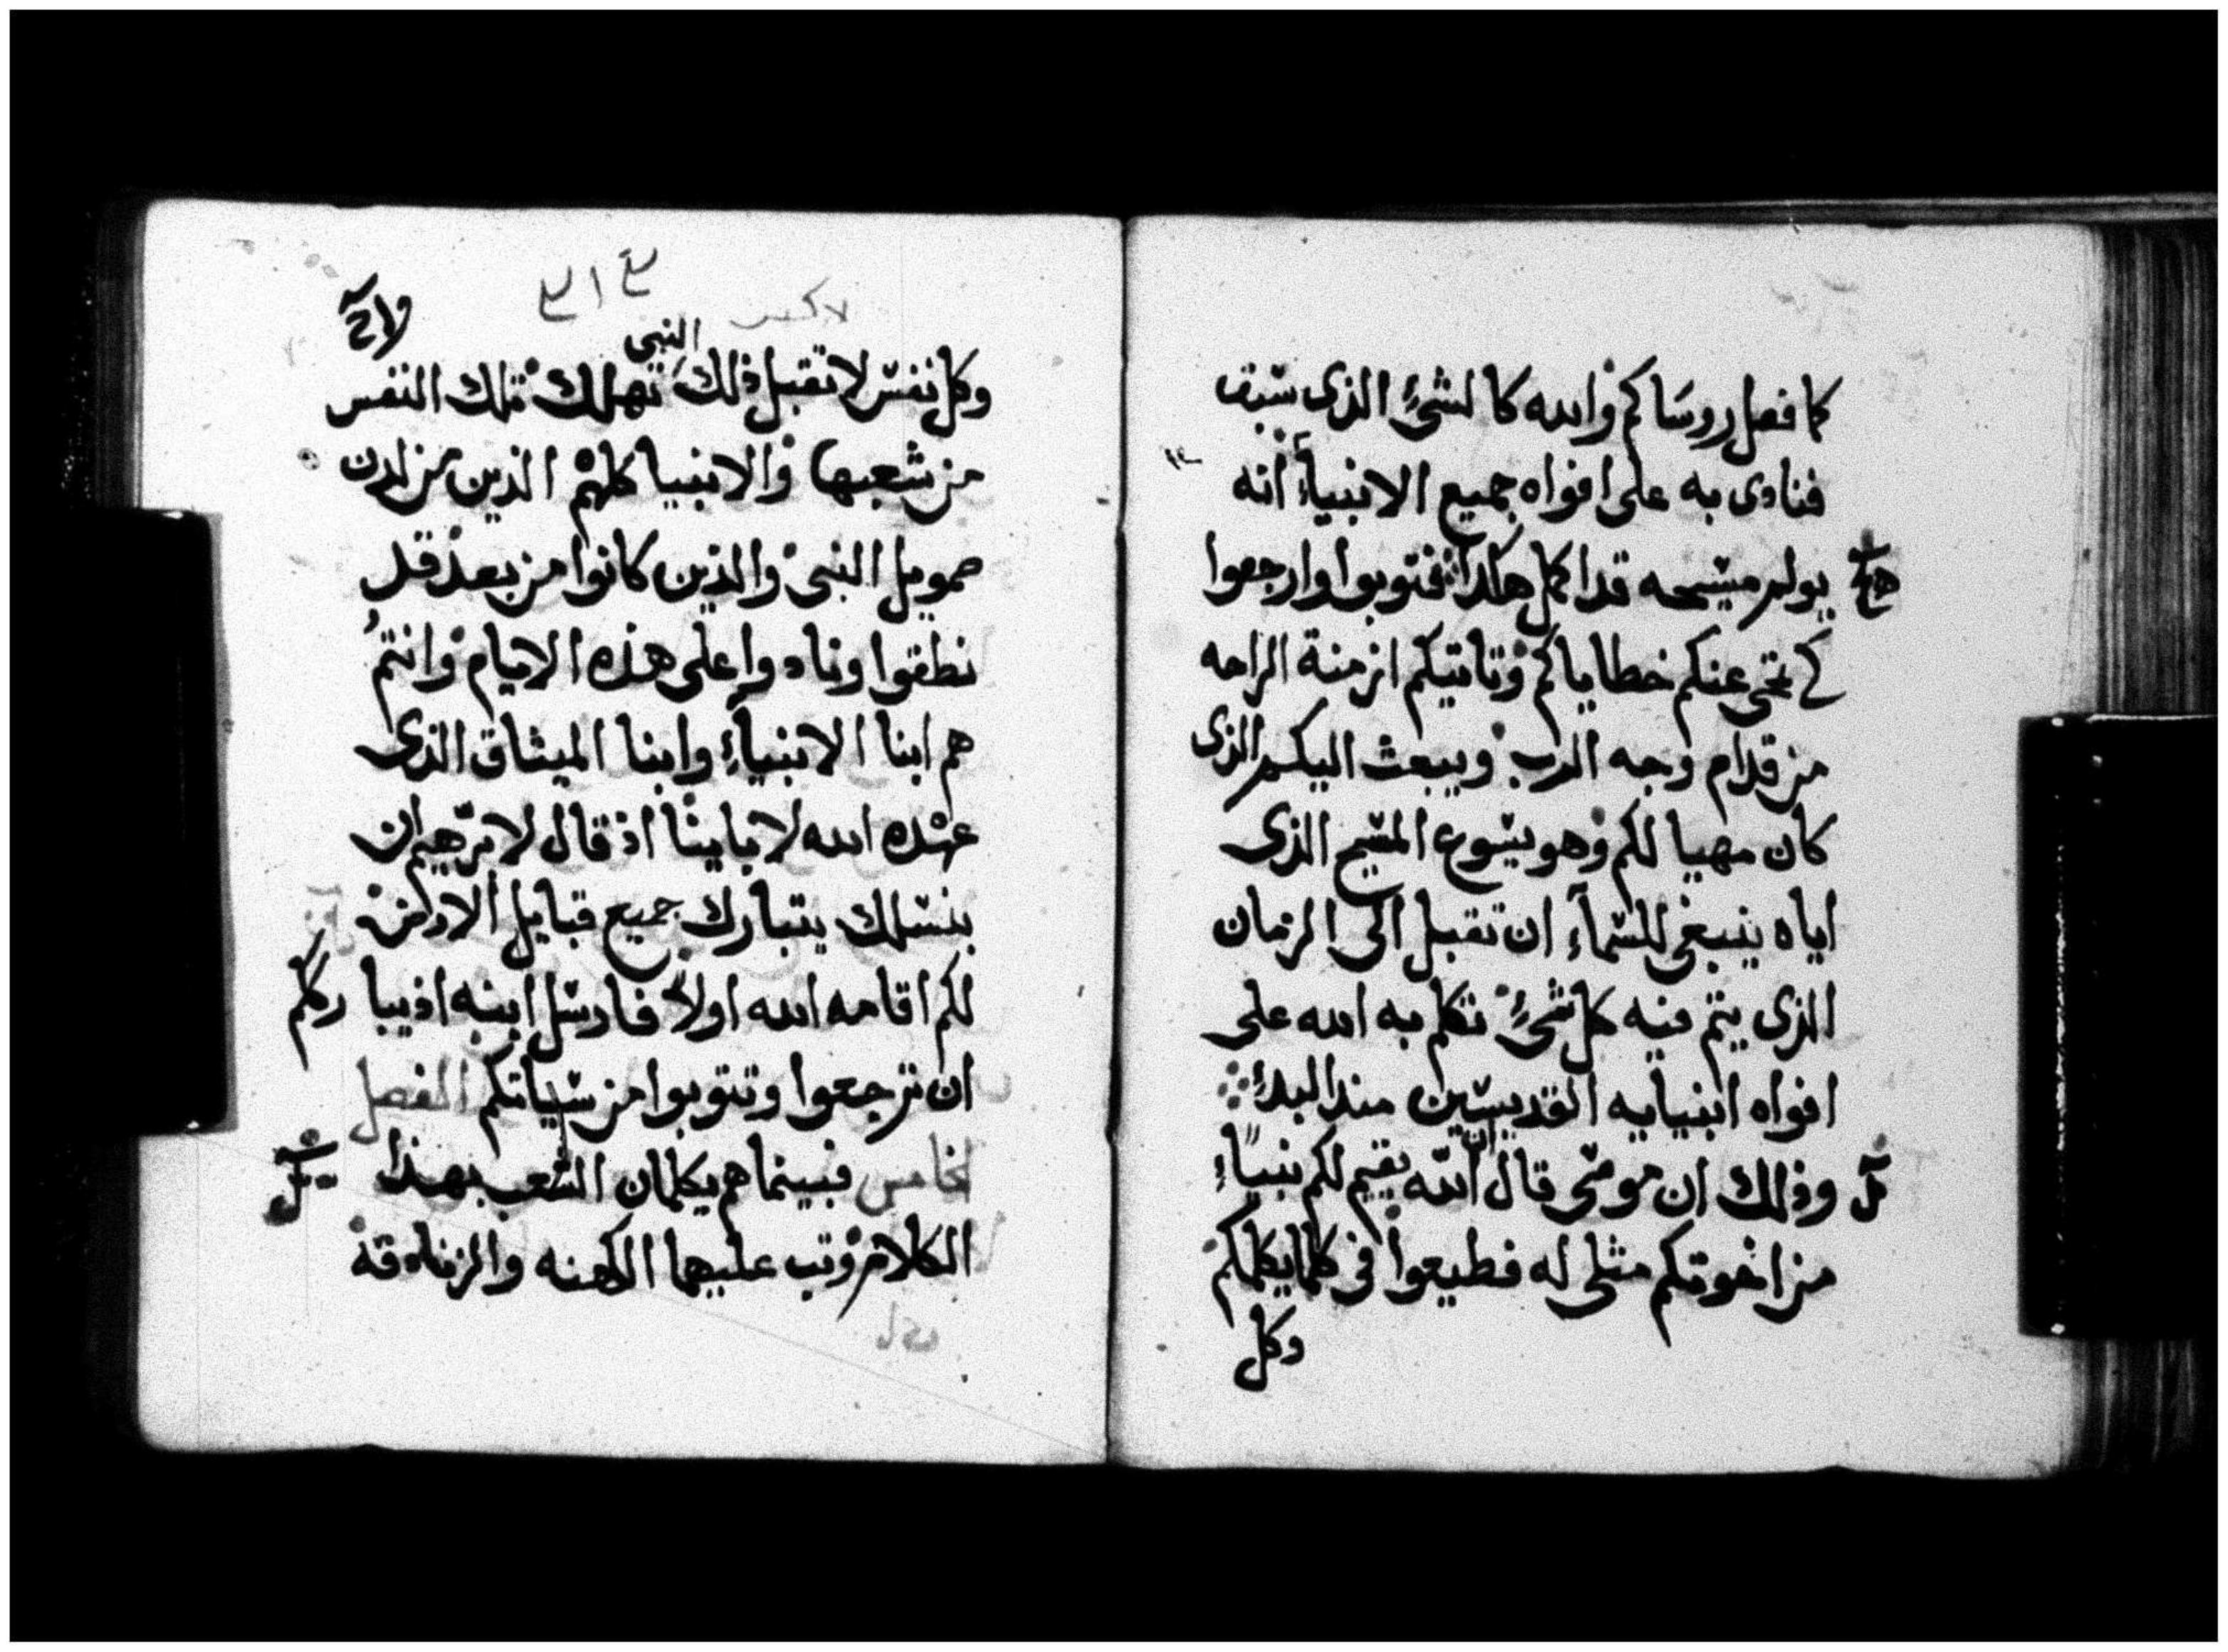 كما فصل روساكم والله كالشئ الذى سبق
فنادى به على افواه جميع الانبياء انه
يولم مسيحه قد اكمل هكدا فتوبوا وارجعوا
كى تمحى عنكم خطاياكم وتاتيكم ازمنة الراحه
من قدام وجه الرب ويبعث اليكم الذى
كان مهيا لكم وهو يسوع المسيح الذى
اياه ينبغى للسماء ان تقبل الى الزمان
الذى يتم فيه كل شئ تكلم به الله على
افواه انبيايه القديسين مند البدء
وذلك ان موسى قال ان الله يقيم لكم نبياء
من اخوتكم مثلى له فطيعوا فى كلما يكلمكم
وكل
النبى
وكل نفس لا تقبل ذلك تهلك تلك النفس
من شعبها والانبيا كلهم الذين من لدن
صمويل النبى والذين كانوا من بعد قد
نطقوا ونادوا على هذه الايام وانتم
هم ابنا الانبياء وابنا الميثاق الذى
عهده الله لاباينا اذ قال لابرهيم ان
بنسلك يتبارك جميع قبايل الارض
لكم اقامه الله اولا فارسل ابنه اذ يبارككم
ان ترجعوا وتتوبوا من سياتكم الفصل
الخامس فبينما هم يكلمان الشعب بهذا
الكلام وتب عليهما الكهنه والزنادقه